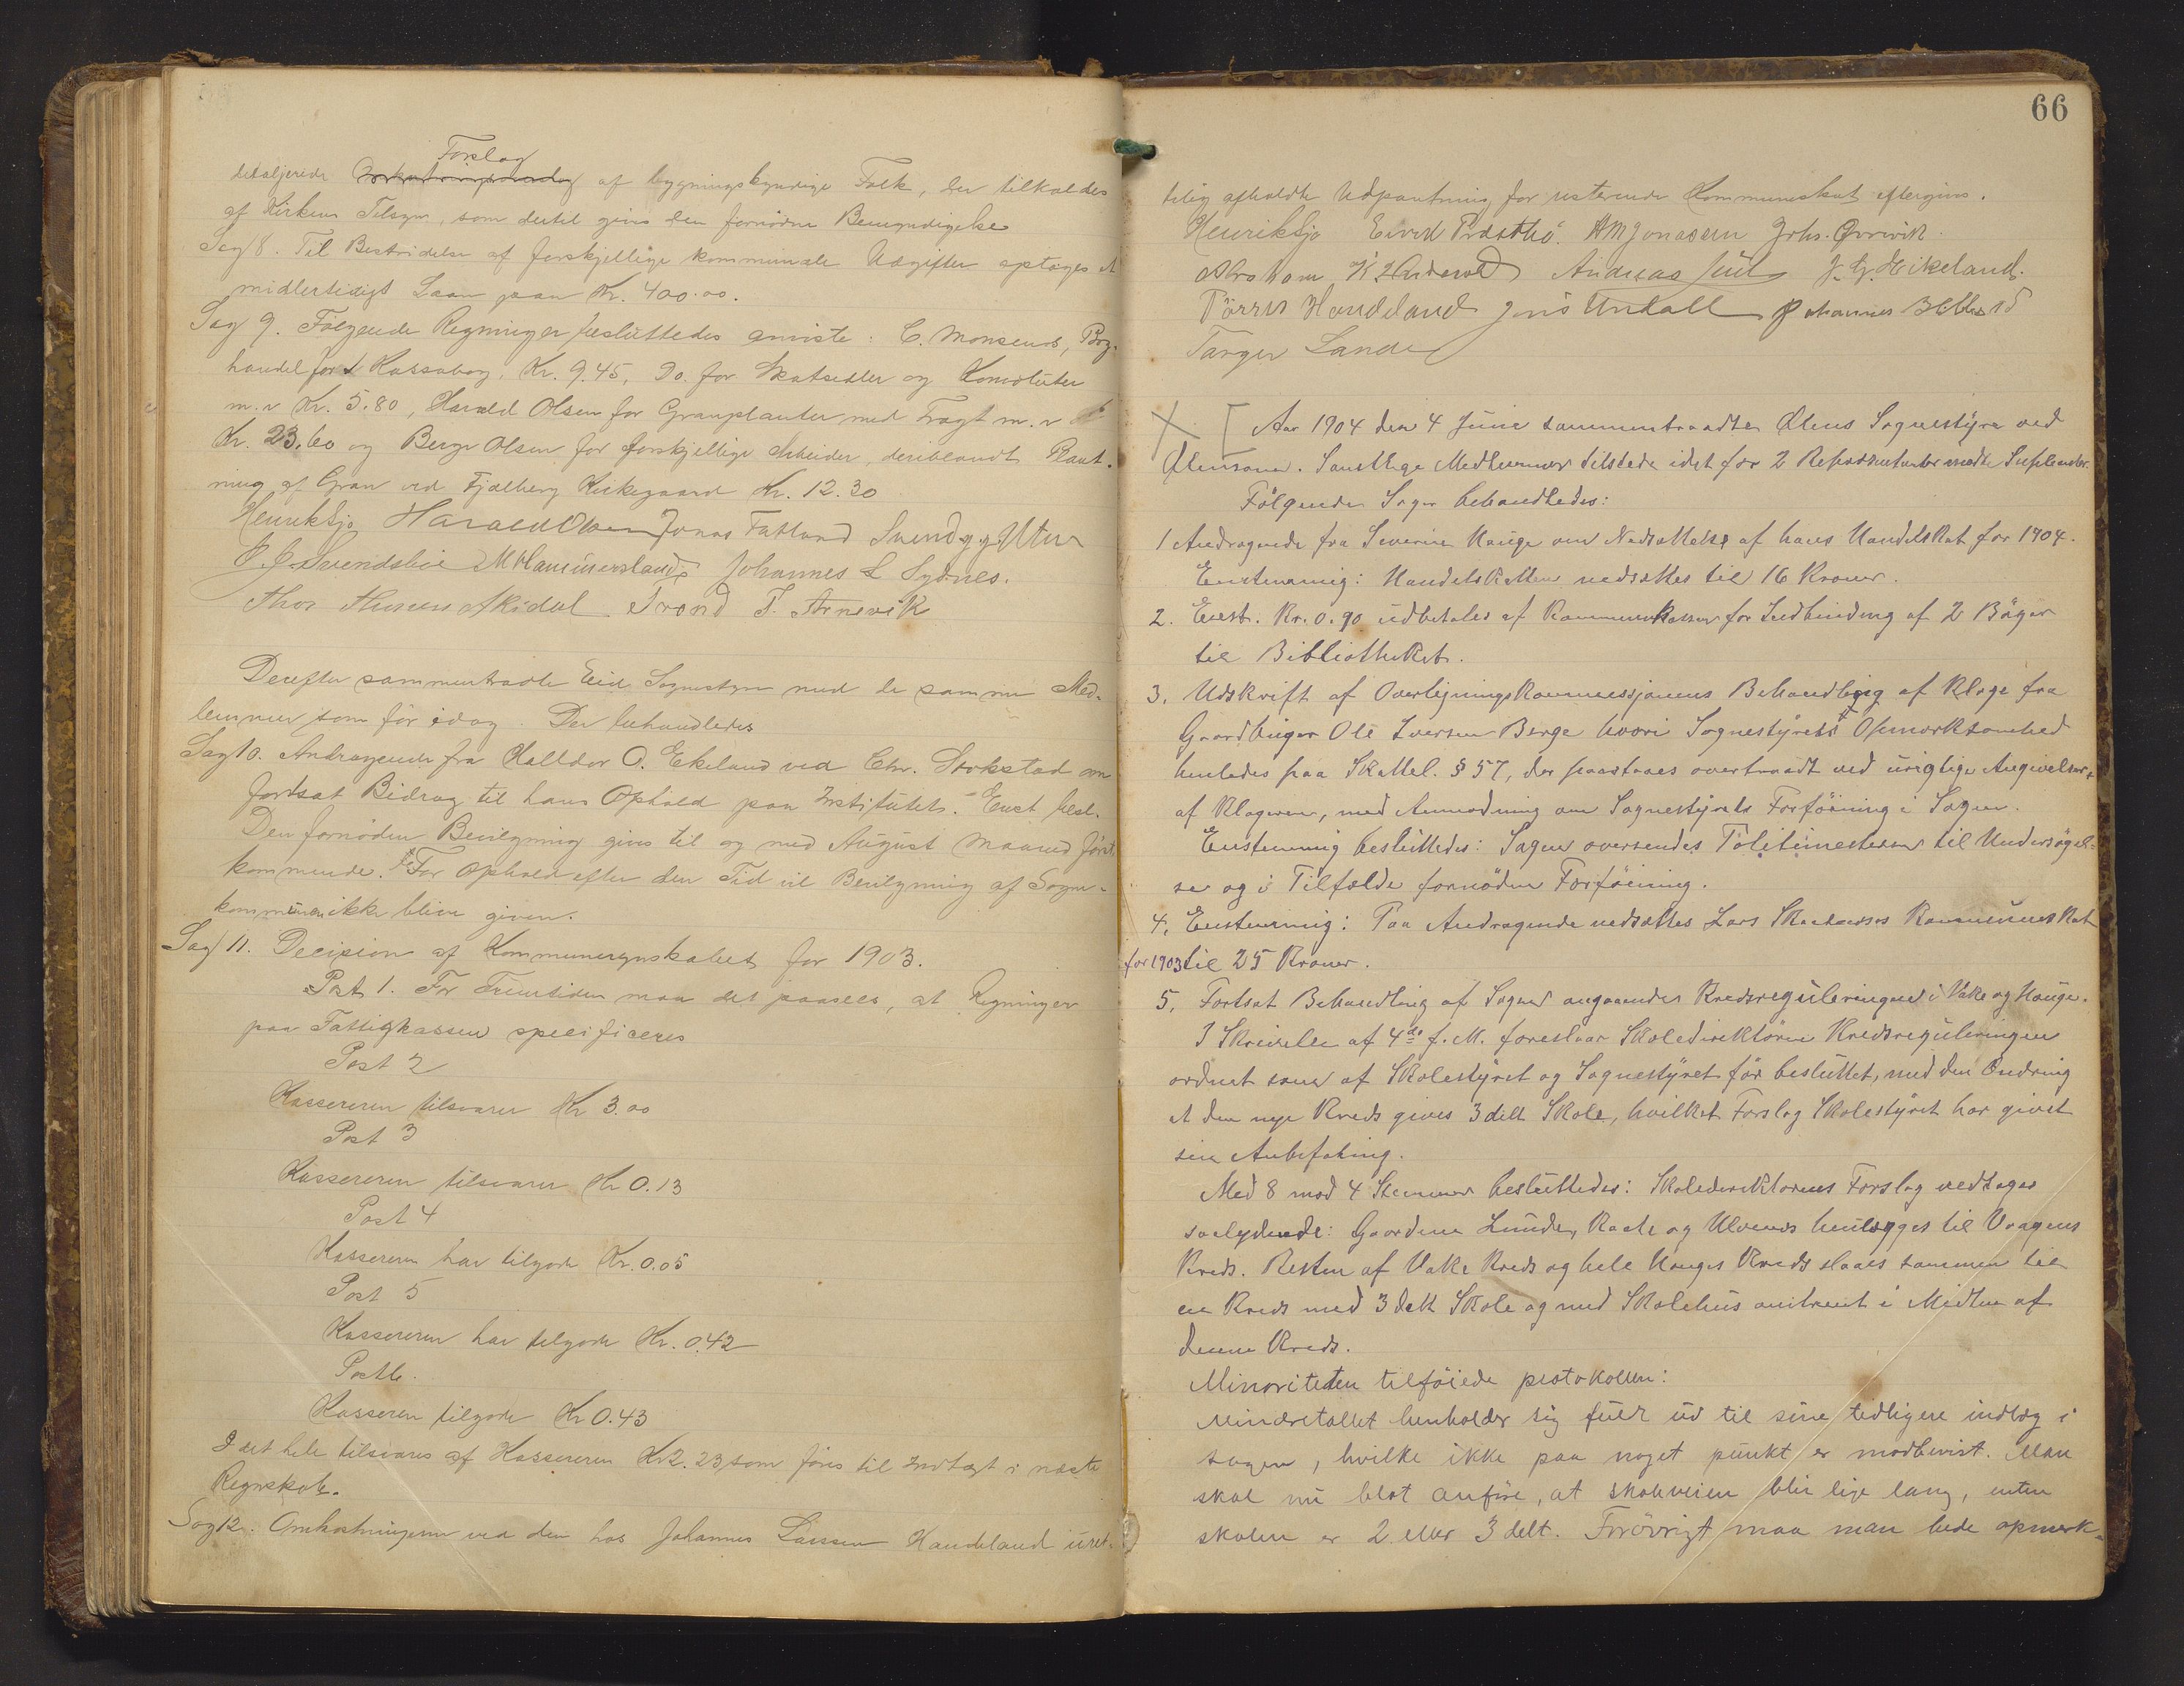 Forslag
detaljerede af bygningskyndige Folk, der tilkaldes
af Kirkens Tilsyn, som dertil gives den fornødne Bemyndigelse
Sag 8. Til Bestridelse af forskjellige kommunale Udgifter optages et
midlertidigt Laan paa Kr. 400.00.
Sag 9. Følgende Regninger besluttedes anviste: C. Monsens, Bog-
handel for 1 Kassabog, Kr. 9.45, Do. for Skatsedler og Konvolutter
m. v Kr. 5.80, Harald Olsen for Granplanter med Fragt m. v
Kr. 23.60 og Berge Olsen for forskjellige Arbeider, deriblandt Plant-
ning af Gran ved Fjælberg Kirkegaard Kr. 12.30
Henrik Sjo Harald Olsen Jonas Fatland Svend
J. J. Svendsbøe M Hammersland Johannes L Sydnes.
Thor Thorsen Trond T. Arnevik
Derefter sammentraadte Eid Sognestyre med de samme Med-
lemmer som før idag. Der behandledes
Sag 10. Andragende fra Halldor O. Ekeland ved Chr. Stokstad om
fortsat Bidrag til hans Ophold paa Institutet. Enst. besl.
Den fornødne Bevilgning gives til og med August Maaned først
kommende. For Ophold efter den Tid vil Bevilgning af Sogne-
kommunen ikke blive given.
Sag 11. Decision af Kommuneregnskabet for 1903.
Post 1. For Fremtiden maa det paasees, at Regninger
paa Fattigkassen specificeres
Post 2
Kassereren tilsvarer Kr 3.00
Post 3
Kassereren tilsvarer Kr 0.13
Post 4
Kassereren har tilgode Kr. 0.05
Post 5
Kassereren har tilgode Kr. 0.42
Post 6.
Kasseren tilgode Kr 0.43
I det hele tilsvares af Kassereren Kr 2.23, som føres til Indtægt i næste
Regnskab.
Sag 12. Omkostningerne ved den hos Johannes Larsen Handeland uret-
66
telig afholdte Udpantning for resterende Kommuneskat eftergives.
Henrik Sjo Eivind Præsthø. AM Jonassen Johs. Qvrivik
Abraham Andreas J. G. Heikeland.
Tørres Handeland Jens Undall Johannes
Torger Lande
X [ Aar 1904 den 4 Juni sammentraadte Ølens Sognestyre ved
Ølensøen. Samtlige Medlemmer tilstede idet for 2 Repræsentanter mødte Suplenter.
Følgende Sager behandledes:
1 Andragende fra Severin Hauge om Nedsættelse af hans Handelskat for 1904.
Enstemmig: Handelskatten nedsættes til 16 Kroner.
2. Enst. Kr. 0.90 udbetales af Kommunekassen for Indbinding af 2 Bøger
til Bibliotheket.
3. Udskrift af Overligningskommissjonens Behandling af Klage fra
Gaardbruger Ole Iversen Berge hvori Sognestyrets Opmerksomhed
henledes paa Skattel. § 57, der paastaaes overtraadt ved urigtige Angivelser
af Klageren, med Anmodning om Sognestyrets Forføining i Sagen.
Enstemmig besluttedes: Sagen oversendes Politimesteren til Undersøgel-
se og i Tilfælde fornøden Forføining.
4. Enstemmig: Paa Andragende nedsættes Lars Kommuneskat
for 1903 til 25 Kroner.
5. Fortsat Behandling af Sagen angaaende Kredsreguleringen i Vake og Hauge.
I Skrivelse af 4de f. M. foreslaar Skoledirektøren Kredsreguleringen
ordnet som af Skolestyret og Sognestyret før besluttet, med den Endring
at den nye Kreds gives 3 delt Skole, hvilket Forslag Skolestyret har givet
sin Anbefaling.
Med 8 mod 4 Stemmer besluttedes: Skoledirektørens Forslag vedtages
saalydende: Gaardene Lunde, og henlægges til Vaagens
Kreds. Resten af Vake Kreds og hele Hauges Kreds slaaes sammen til
en Kreds med 3 delt Skole og med Skolehus omtrent i Midten af
denne Kreds.
Minoriteten tilføiede protokollen:
Mindretallet henholder sig fuldt ud til sine tidligere indlæg i
sagen, hvilke ikke paa noget punkt er modbevist. Man
skal nu blot anføre, at skoleveien blir lige lang, enten
skolen er 2 eller 3 delt. Forøvrigt maa man bede opmerk-